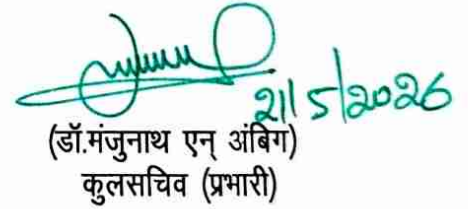 21/5/2026
(डॉ.मंजुनाथ एन् अंबिग)
कुलसचिव (प्रभारी)